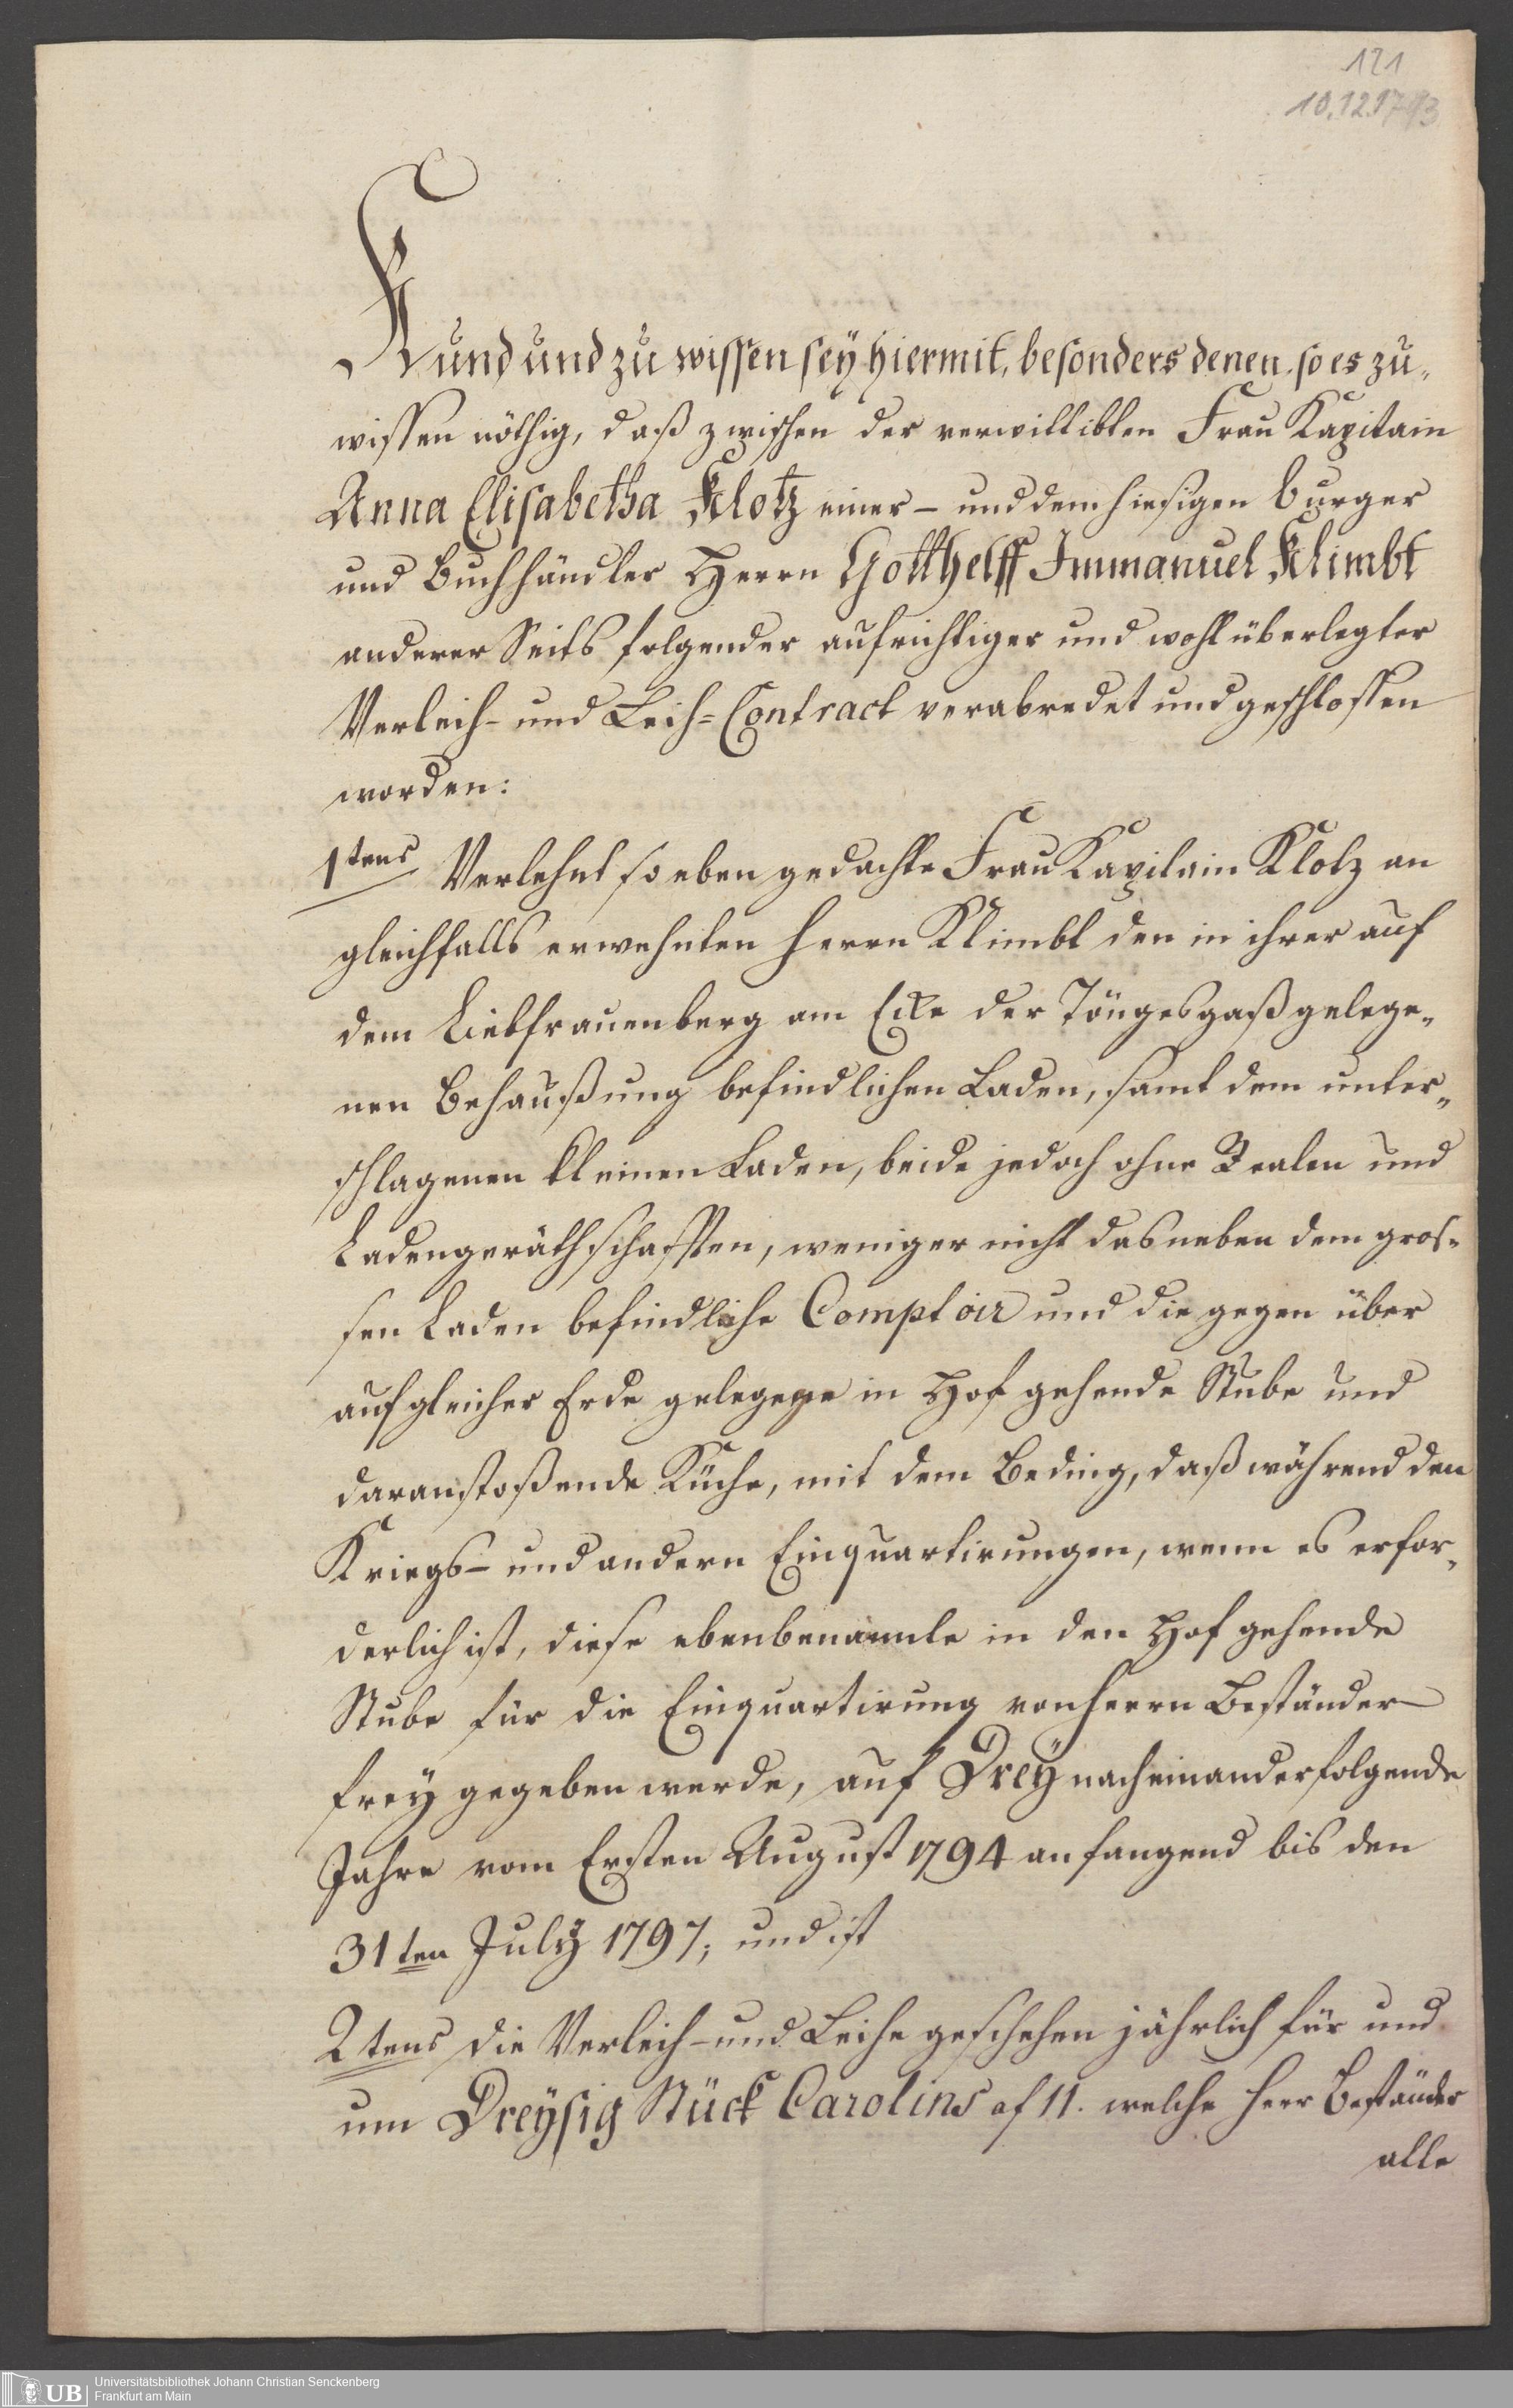 121
10.12.1793
Kund und zu wissen sey hiermit, besonders denen, so es zu„
wissen nöthig, daß zwischen der verwittibten Frau Kapitain
Anna Elisabetha Klotz einer – und dem hiesigen burger
und Buchhändler Herrn Gotthelff Immanuel Klimbt
anderer Seits folgender aufrichtiger und wohl überlegter
Verleih- und Leih-Contract verabredet und geschlossen
worden:
1tens Verlehnt so eben gedachte Frau Kapitain Klotz an
gleichfalls erwehnten Herrn Klimbt den in ihrer auf
dem Liebfrauenberg am Ecke der Töngesgaß gelege„
nen Behaußung befindlichen Laden, samt dem unter„
schlagenen kleinen Laden, beide jedoch ohne Realen und
Ladengeräthschafften, weniger nicht das neben dem gros„
sen Laden befindliche Comptoir und die gegen über
auf gleicher Erde gelegene in Hof gehende Stube und
daranstoßende Küche, mit dem Beding, daß während den
Kriegs- und andern Einquartirungen, wenn es erfor„
derlich ist, diese ebenbenannte in den Hof gehende
Stube für die Einquartirung von Herrn Beständer
frey gegeben werde, auf Drey nach einander folgende
Jahre vom Ersten August 1794 anfangend bis den
31ten July 1797, und ist
2tens die Verleih- und Leihe geschehen jährlich für und
um Dreysig Stück Carolins af 11. welche Herr Beständer
alle
UB
Universitätsbibliothek Johann Christian Senckenberg
Frankfurt am Main